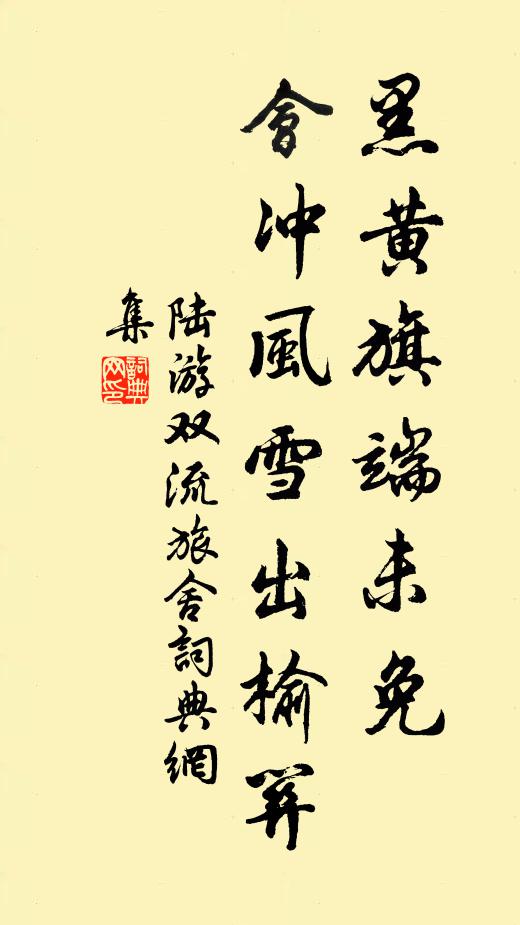 黑黄旗端未免
會冲風雪出榆關
陆游双流旅舍詞典網
集
詞典
网印